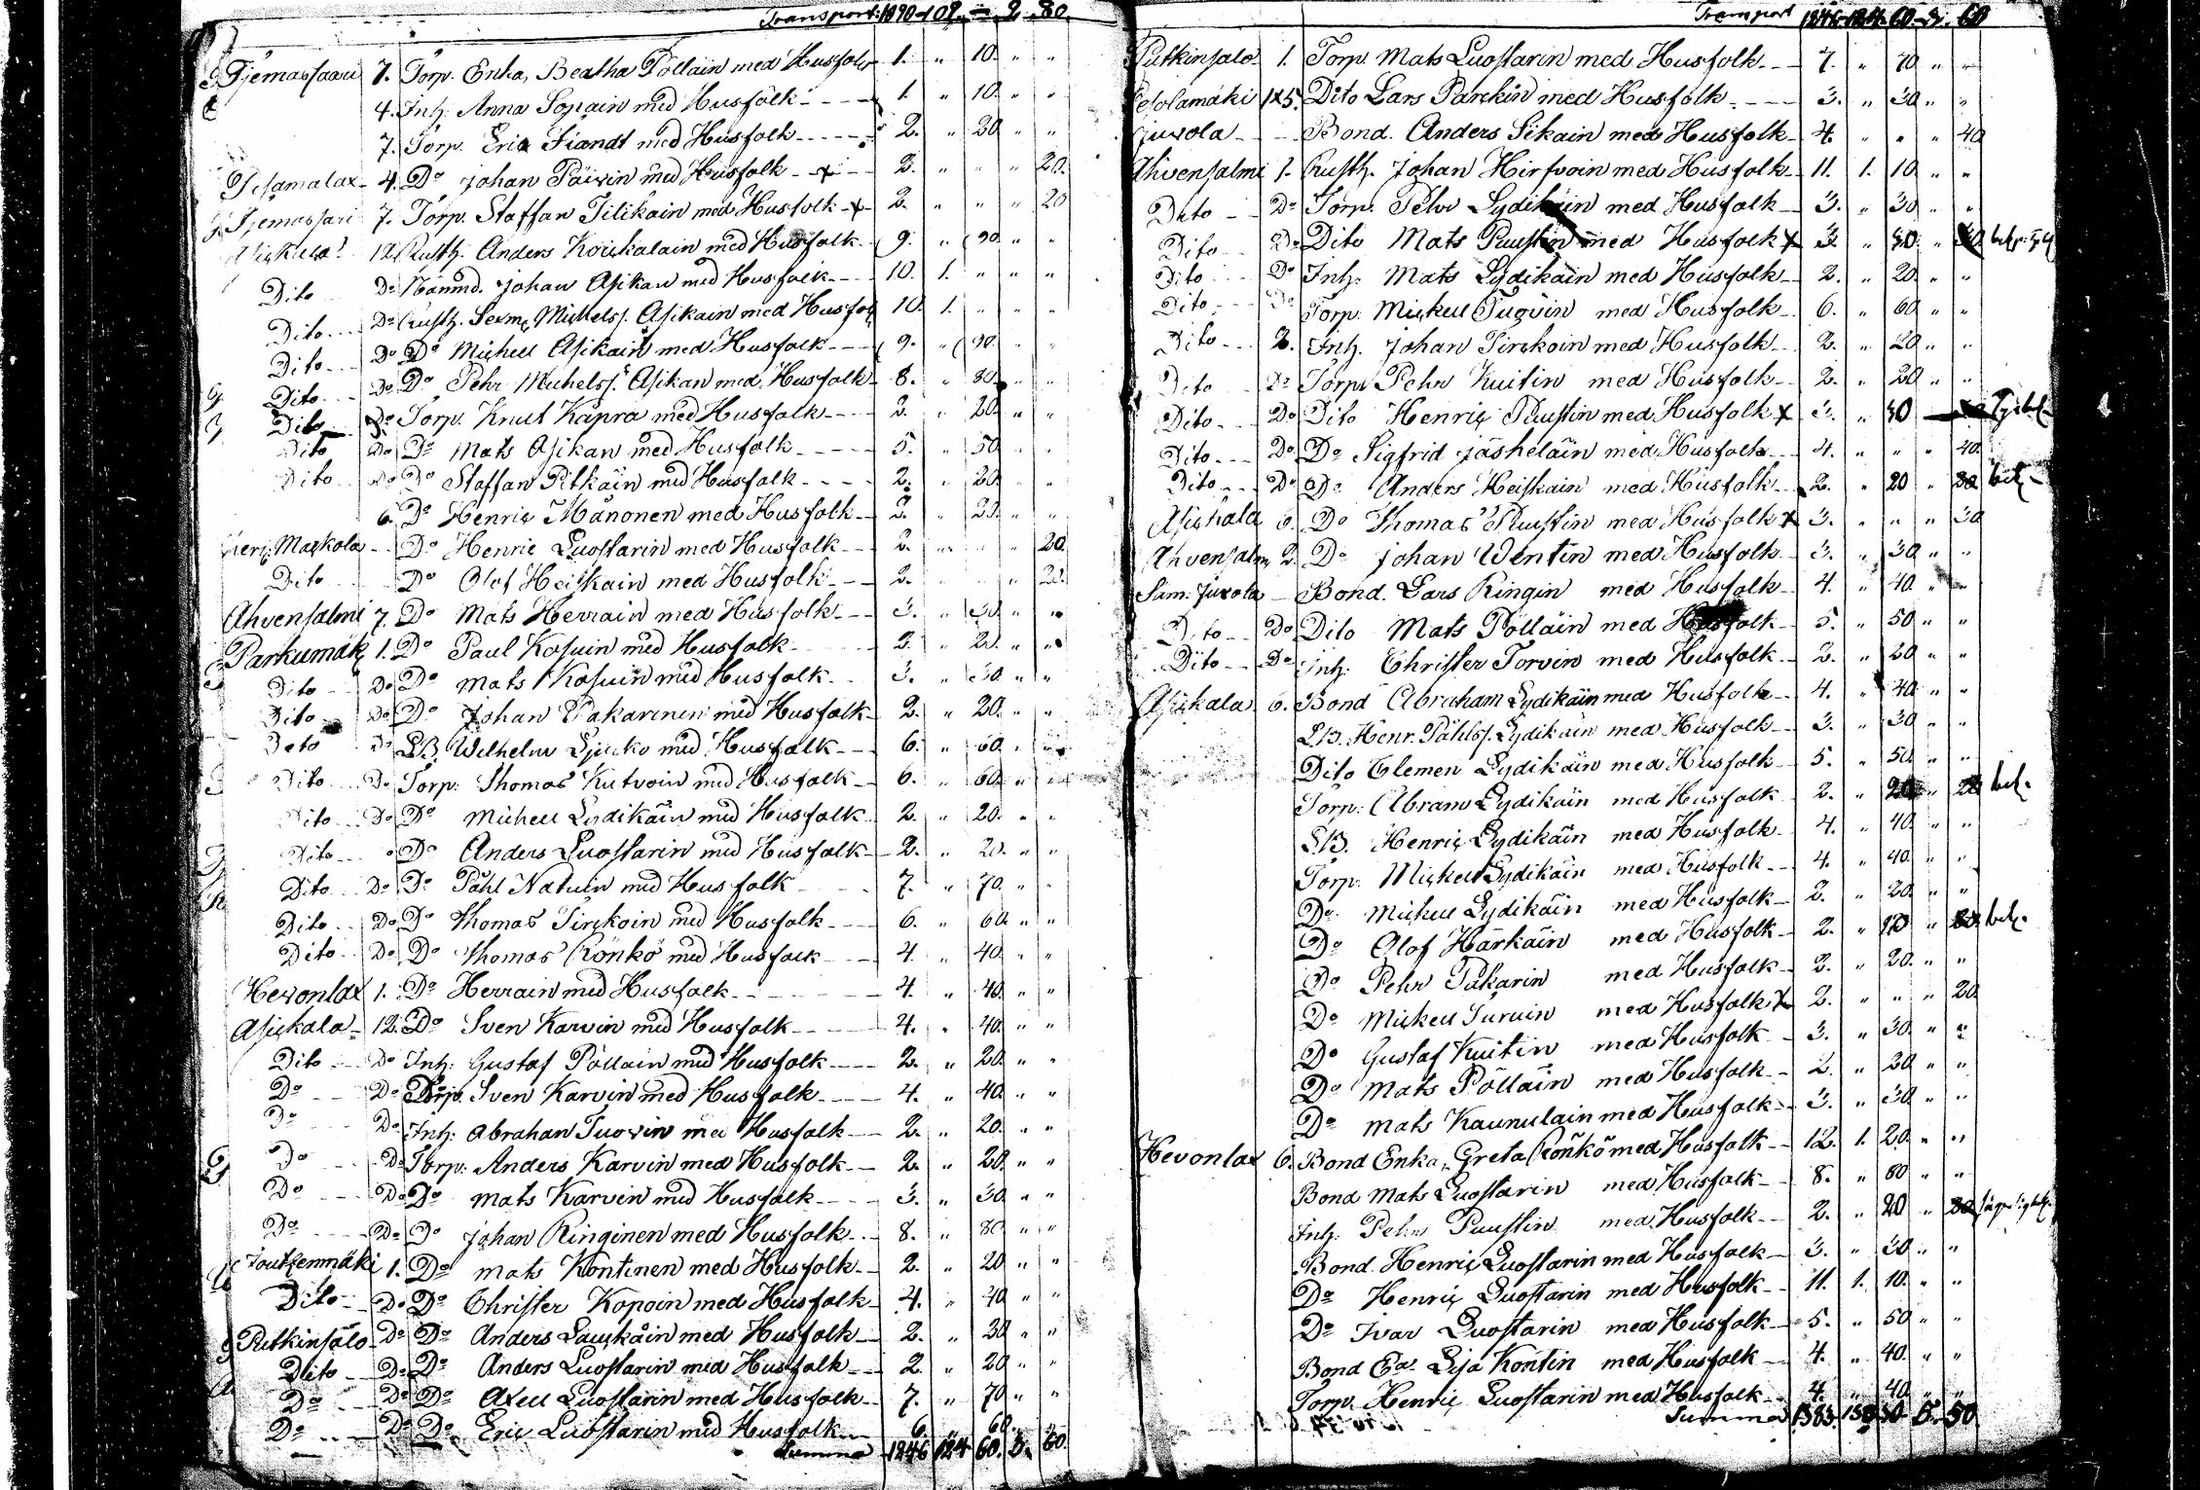 Transport: 1090 109 2 80
Tjemassaari 7. Torp. Enka, Beatha Pöllain med Husfolk 1. " 10. " "
4. Inh. Anna Sopain med Husfolk 1. " 10. " "
7. Torp. Eric Fiandt med Husfolk 2. " 20 " "
4. Do Johan Päivin med Husfolk x 2. " " " 20.
7. Torp. Staffan Tilikain med Husfolk x 2. " " " 20
12 Rusth. Anders Koukalain med Husfolk 9. " 90. " "
Dito Do Nämnd. Johan Asikan med Husfolk 10. 1. " " "
Dito Do Rusth. Michelss. Asikain med Husfolk 10. 1. " " "
Dito Do Do Michell Asikain med Husfolk 9. " 90. " "
Dito Do Do Pehr Michelss. Asikan med Husfolk 8. " 80. " "
Dito Do Torp. Knut Kapra med Husfolk 2. " 20. " "
Dito Do Do Mats Asikan med Husfolk 5. " 50. " "
Dito Do Do Staffan Pitkäin med Husfolk 2. " 20. " "
6. Do Henric Manonen med Husfolk 2. " 20. " "
Maskola Do Henric Luostarin med Husfolk 2. " " " 20.
Dito Do Olof Heiskain med Husfolk 2. " " " 20.
Ahvensalmi 7. Do Mats Herrain med Husfolk 3. " 30. " "
Parkumäki 1. Do Paul Kosuin med Husfolk 2. " 20. " "
Dito Do Do Mats Kosuin med Husfolk 3. " 30. " "
Dito Do Do Johan Pakarinen med Husfolk 2. " 20. " "
Dito Do LB. Wilhelm med Husfolk 6. " 60. " "
Dito Do Torp. Thomas Kutvoin med Husfolk 6. " 60. " "
Dito Do Do Michell Lydikäin med Husfolk 2. " 20. " "
Dito Do Anders Luostarin med Husfolk 2. " 20. " "
Dito Do Do Påhl Natuin med Husfolk 7. " 70. " "
Dito Do Do Thomas Tirckoin med Husfolk 6. " 60. " "
Dito Do Do Thomas Rönkö med Husfolk 4. " 40. " "
Hevonlax 1. Do Herrain med Husfolk 4. " 40. " "
Asickala 12. Do Sven Karvin med Husfolk 4. " 40. " "
Dito Do Inh. Gustaf Pöllain med Husfolk 2. " 20. " "
Do Do Torp. Sven Karvin med Husfolk 4. " 40. " "
Do Do Inh. Abrahan Tuovin med Husfolk 2. " 20. " "
Do Do Torp. Anders Karvin med Husfolk 2. " 20. " "
Do Do Do Mats Karvin med Husfolk 3. " 30. " "
Do Do Do Johan Ringinen med Husfolk 8. " 80. " "
Joutsenmäki 1. Do Mats Kontinen med Husfolk 2. " 20. " "
Dito Do Do Christer Kopoin med Husfolk 4. " 40 " "
Putkinsalo Do Do Anders Lauckain med Husfolk 2. " 20 " "
Dito Do Do Anders Luostarin med Husfolk 2. " 20 " "
Do Do Do Axell Luostarin med Husfolk 7. " 70 " "
Do Do Do Eric Luostarin med Husfolk 6. " 60 " "
Summa 1246 124 60. 3. 60.
Transport 1246 124 60 3. 60
Putkinsalo 1. Torp. Mats Luostarin med Husfolk 7. " 70 " "
Pesolamäki 1 Dito Lars Parckin med Husfolk 3. " 30 " "
Juvola Bond. Anders Sikain med Husfolk 4. " " " 40
Ahvensalmi 1. Rusth. Johan Hirfvoin med Husfolk 11. 1. 10 " "
Dito Do Torp. Petter Lydikäin med Husfolk 3. " 30 " "
Dito Do Dito Mats Puustin med Husfolk x 3 " 30. "
Dito Do Inh. Mats Lydikäin med Husfolk 2. " 20 " "
Dito Do Torp. Mickell Tugvin med Husfolk 6. " 60 " "
Dito 2. Inh. Johan Tirckoin med Husfolk 2. " 20 " "
Dito Do Torp. Pehr Kuitin med Husfolk 2. " 20 " "
Dito Do Dito Henric Puustin med Husfolk x 3. " 30
Dito Do Do Sigfrid Jäskeläin med Husfolk 4. " " " 40
Dito Do Do Anders Heiskain med Husfolk 2. " 20 " 20 bet.
Asickala 6. Do Thomas Puustin med Husfolk x 3. " " " 30
Ahvensalmi 2. Do Johan Wentin med Husfolk 3. " 30 " "
Sam. Juvola Bond. Lars Ringin med Husfolk 4. " 40. " "
Dito Do Dito Mats Pöllain med Husfolk 5. " 50 " "
Dito Do Inh. Christer Torvin med Husfolk 2. " 20 " "
Asickala 6. Bond Abraham Lydikäin med Husfolk 4. " 40 " "
LB. Henr. Påhlss. Lydikäin med Husfolk 3. " 30 " "
Dito Clemen Lydikäin med Husfolk 5. " 50 " "
Torp. Abram Lydikäin med Husfolk 2. " 20 " 20 bet.
LB. Henric Lydikäin med Husfolk 4. " 40 " "
Torp. Mickell Lydikäin med Husfolk 4. " 40 " "
Do Mickell Lydikäin med Husfolk 2. " 20. " "
Do Olof Härkäin med Husfolk 2. " 20 " 20 bet.
Do Pehr Pakarin med Husfolk 2. " 20. " "
Do Mickell Turuin med Husfolk x 2. " " " 20
Do Gustaf Kuitin med Husfolk 3. " 30 " "
Do Mats Pöllain med Husfolk 2. " 20 " "
Do Mats Kaunulain med Husfolk 3. " 30. " "
Hevonlax 6. Bond Enka, Greta Rönkö med Husfolk 12. 1. 20. " "
Bond Mats Luostarin med Husfolk 8. " 80 " "
Inh. Pehr Puustin med Husfolk 2. " 20 " 20
Bond. Henric Luostarin med Husfolk 3. " 30 " "
Do Henric Luostarin med Husfolk 11. 1. 10. " "
Do Ivar Luostarin med Husfolk 5. " 50 " "
Bond Eas Kontin med Husfolk 4. " 40. " "
Torp. Henric Luostarin med Husfolk 4. " 40 " "
Summa 1383. 138 30 5. 50